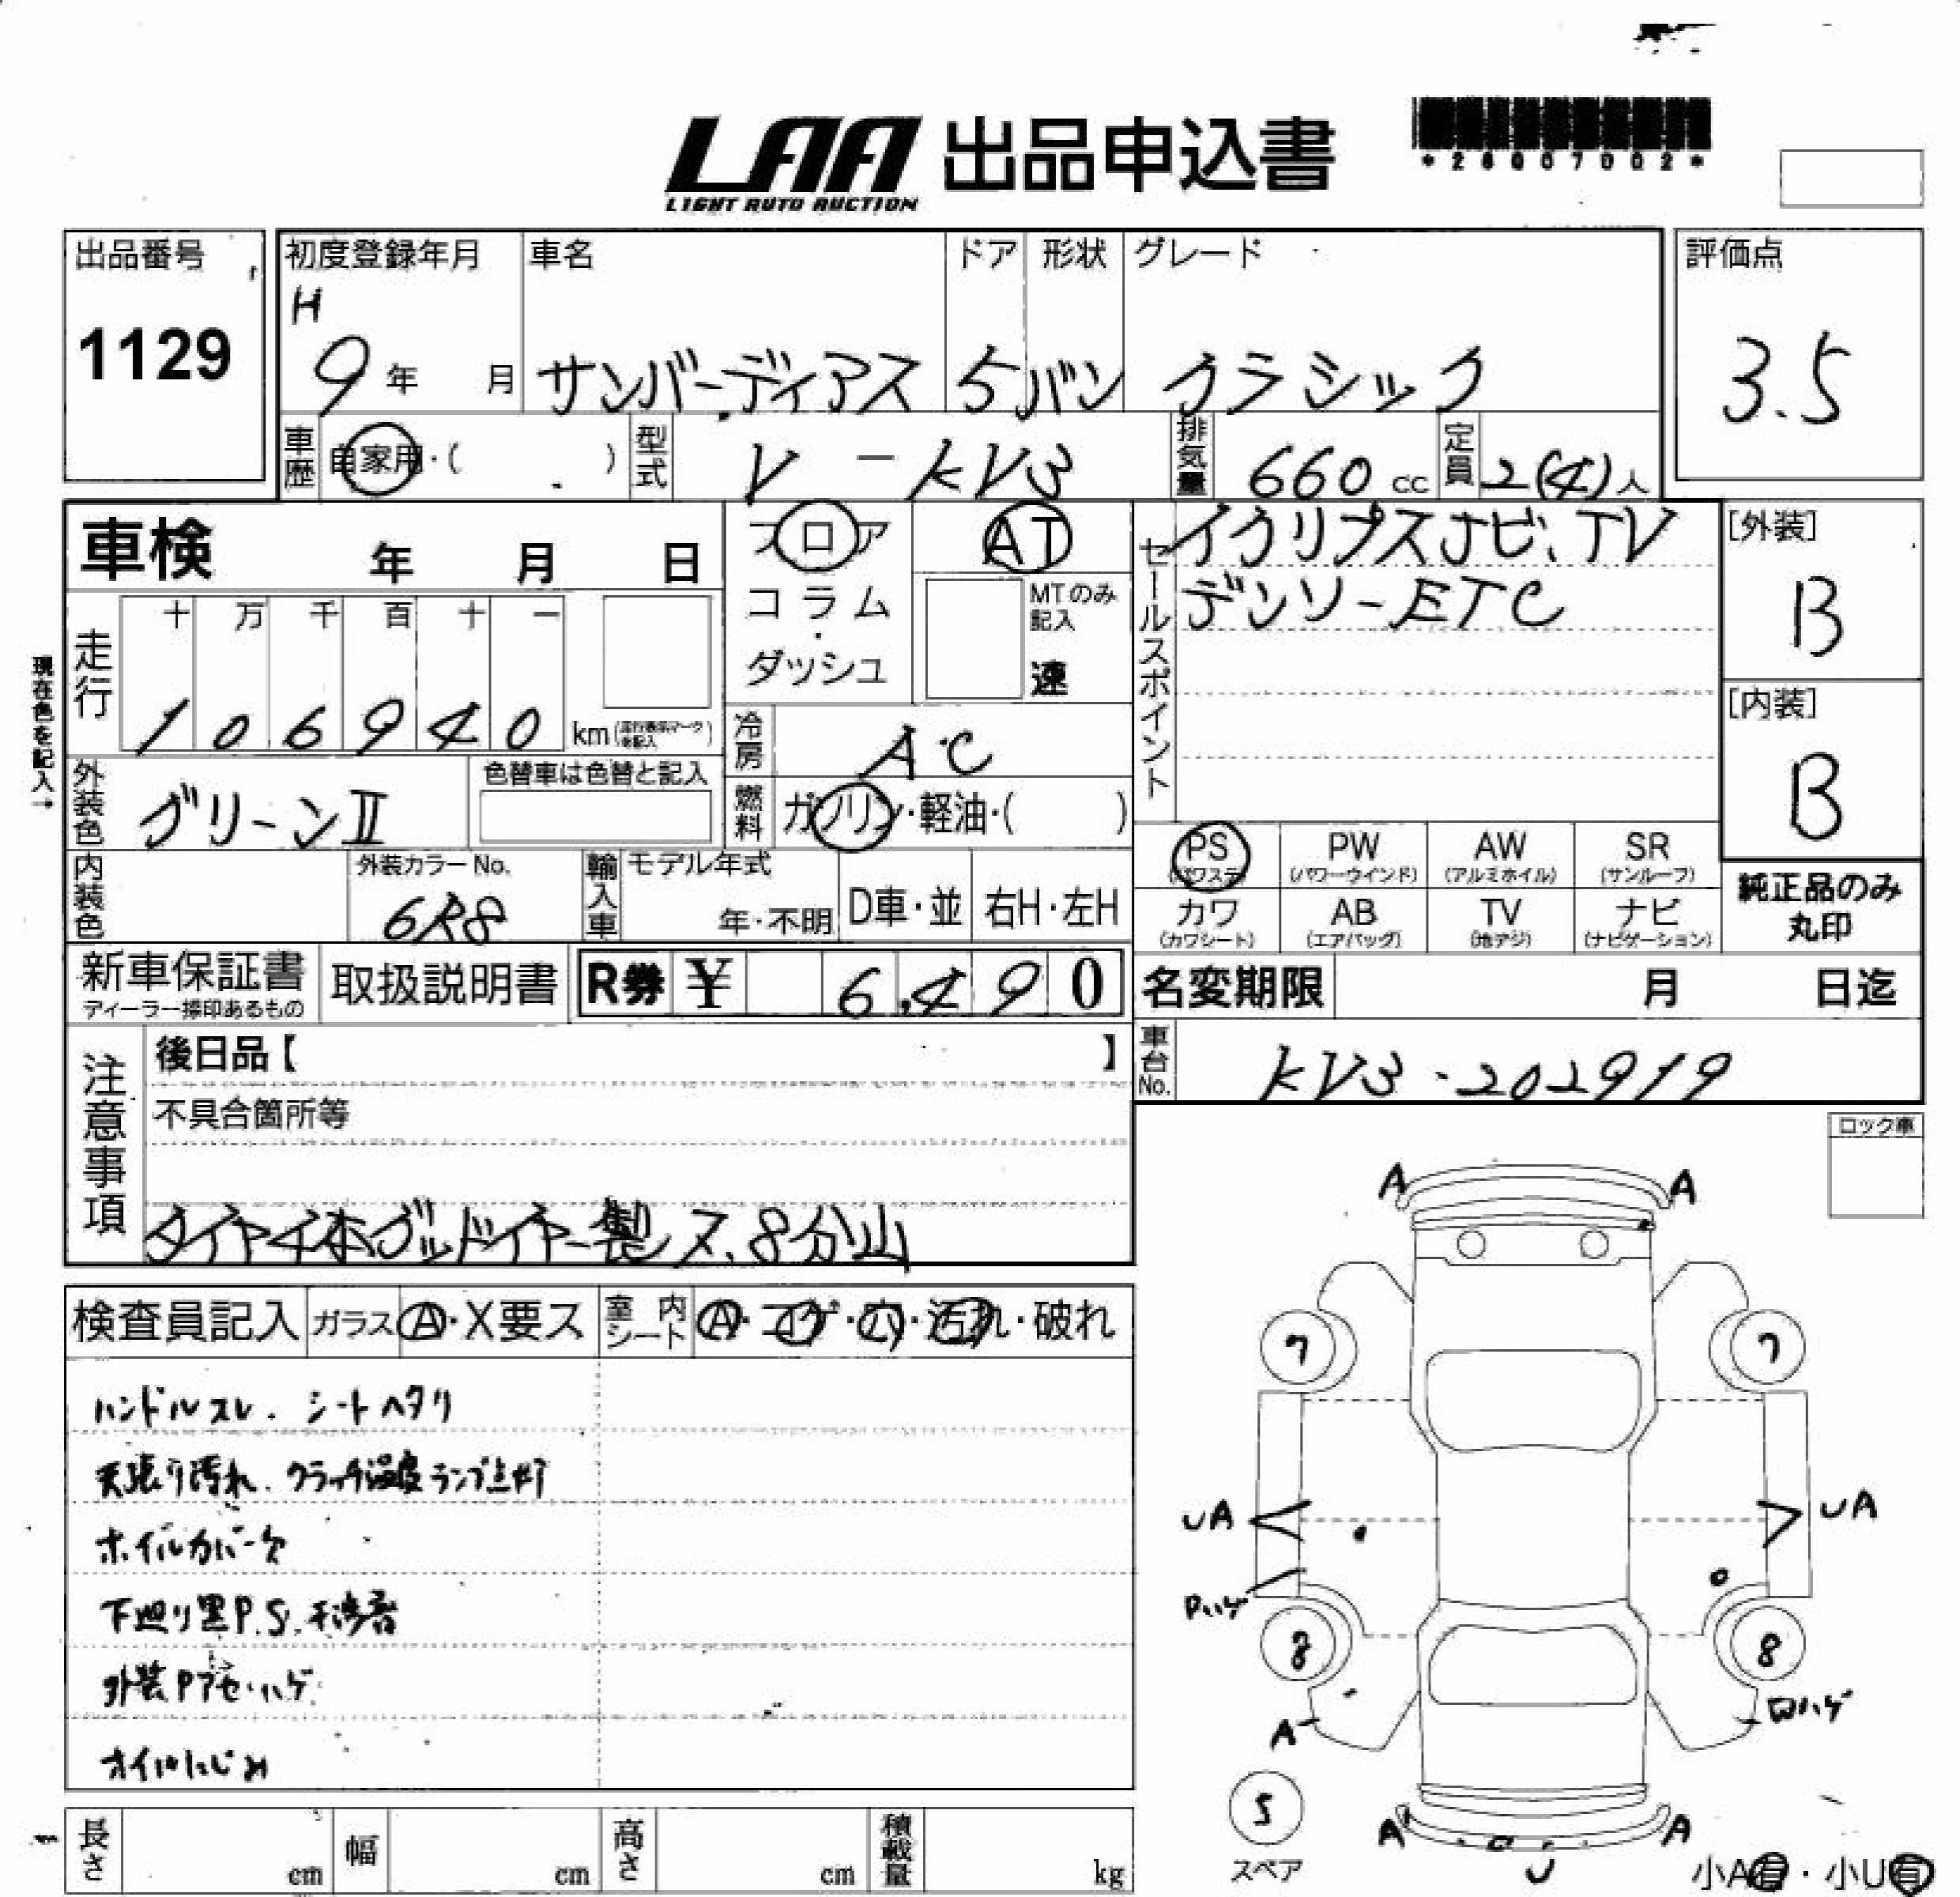 LAA 出品申込書
LIGHT AUTO AUCTION
*26007002*
出品番号
1129
初度登録年月 車名 ドア 形状 グレード
H
9年 月 サンバーディアス 5 バン クラシック
評価点
3.5
車歴 自家用・( ) 型式 V-KV3 排気量 660cc 定員 2(4)人
車検 年 月 日
フロア
コラム
・
ダッシュ
AT
MTのみ
記入
速
セールスポイント
イクリプスナビ、TV
デンソーETC
[外装]
B
[内装]
B
現在色を記入→
走行
十 万 千 百 十 一
1 0 6 9 4 0 km
冷房 A・C
外装色 グリーンⅡ 色替車は色替と記入
燃料 ガソリン・軽油・( )
内装色 外装カラーNo. 6R8
輸入車 モデル年式 年・不明 D車・並 右H・左H
PS PW AW SR
(パワステ) (パワーウインド) (アルミホイル) (サンルーフ)
カワ AB TV ナビ
(カワシート) (エアバッグ) (地デジ) (ナビゲーション)
純正品のみ
丸印
新車保証書 取扱説明書 R券 ¥ 6,490
ディーラー捺印あるもの
名変期限 月 日迄
車台No. KV3-202919
注意事項
後日品【 】
不具合箇所等
タイヤ4本グッドイヤー製ス、8分山
ロック車
検査員記入 ガラス A・X要ス 室内シート A・コゲ・穴・汚れ・破れ
ハンドルスレ. シートヘタリ
天張り汚れ. クラッチ温度ランプ点灯
ホイルカバー欠
下廻り黒P.S.
外装Pアセ・ハゲ
オイルにじみ
A A
7 7
UA UA
Pハゲ
8 8
A ロハゲ
5
スペア
A A
U
小A有・小U有
長さ cm 幅 cm 高さ cm 積載量 kg